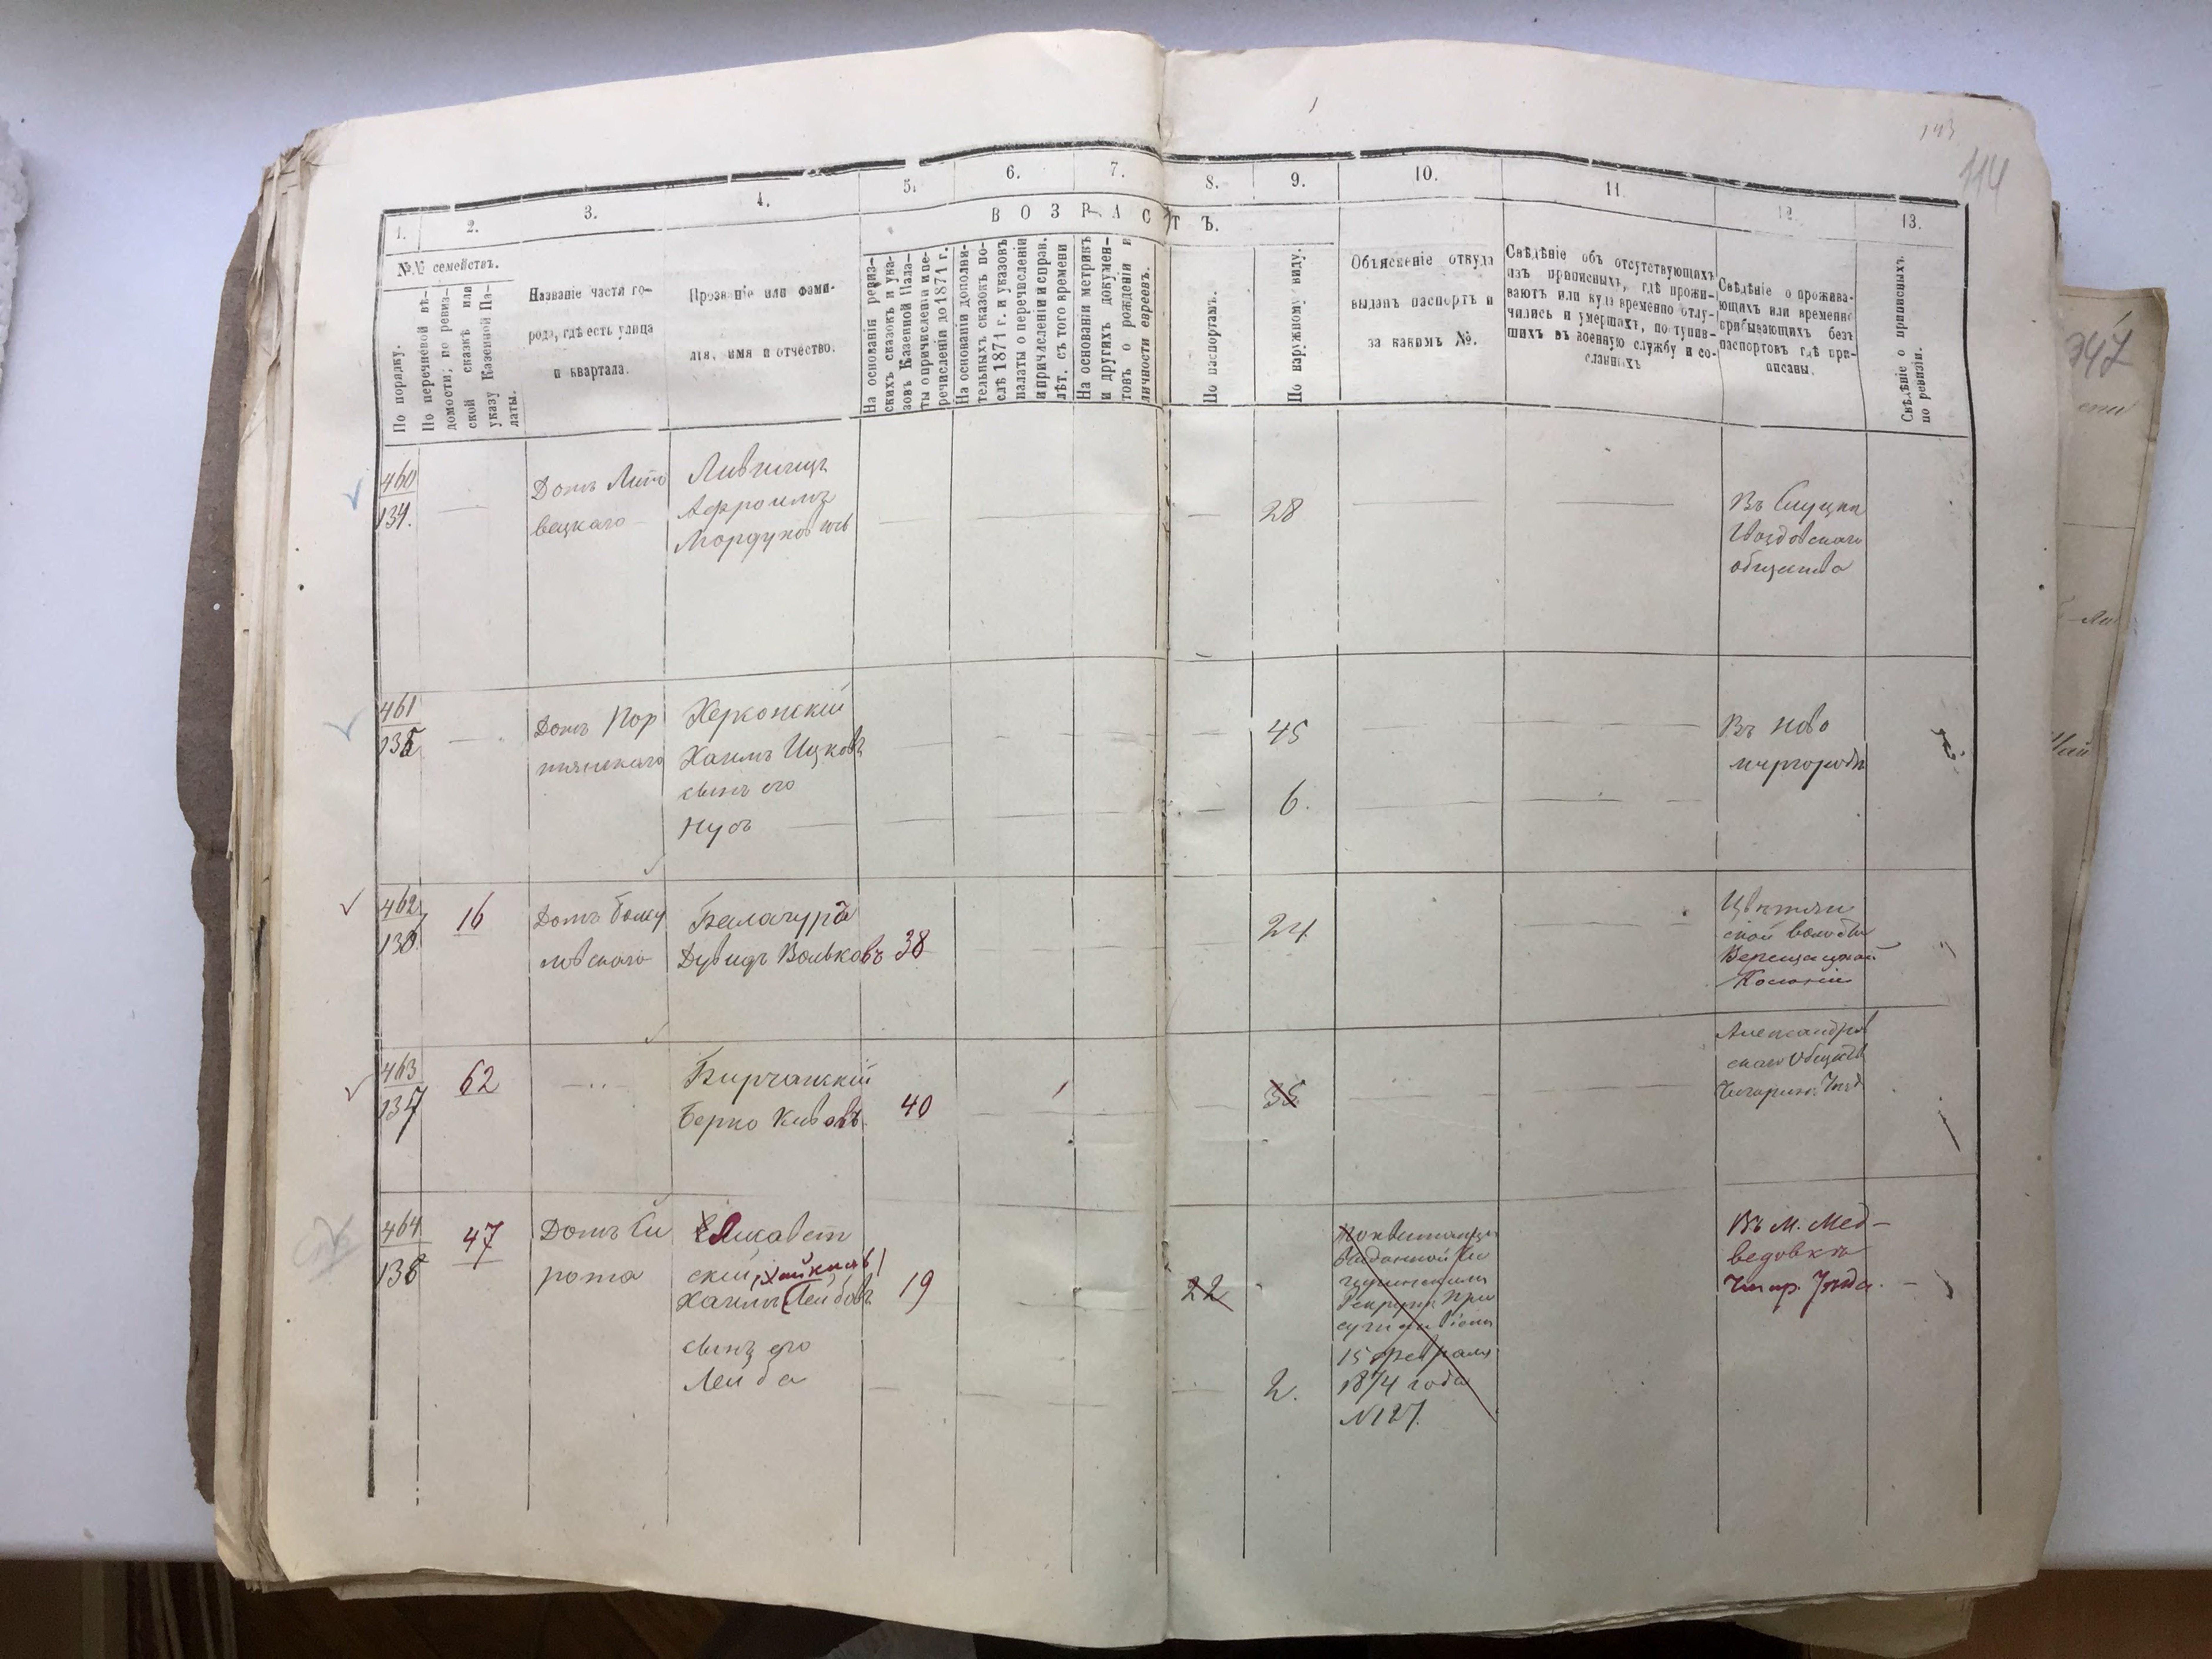 143
114
1.
2.
3.
4.
5.
6.
7.
8.
9.
10.
11.
12.
13.
ВОЗРАСТЪ.
№№ семействъ.
По порядку.
По перечневой вѣ-
домости; по ревиз-
ской сказкѣ или
указу Казенной Па-
латы.
Названіе части го-
рода, гдѣ есть улица
и квартала.
Прозваніе или фами-
лія, имя и отчество.
На основаніи ревиз-
скихъ сказокъ и ука-
зовъ Казенной Пала-
ты о причисленіи и пе-
речисленіи до 1871 г.
На основаніи дополни-
тельныхъ сказокъ по-
слѣ 1871 г. и указовъ
палаты о перечисленіи
и причисленіи и справ.
лѣт. съ того времени
На основаніи метрикъ
и другихъ докумен-
товъ о рожденіи и
личности евреевъ.
По паспортамъ.
По наружному виду.
Объясненіе откуда
выданъ паспортъ и
за какимъ №.
Свѣдѣніе об отсутствующихъ
изъ приписныхъ, гдѣ прожи-
ваютъ или куда временно отлу-
чились и умершихъ, поступив-
шихъ въ военную службу и со-
сланныхъ
Свѣдѣніе о прожива-
ющихъ или временно
прибывающихъ безъ
паспортовъ гдѣ при-
писаны.
Свѣдѣніе о приписныхъ
по ревизіи.
460
134.
Домъ Лито
вецкаго
Лившицъ
Афроимъ
Мордуховичъ
28
Въ
общества
461
135
Домъ Пор
Херсонскій
Хаимъ Ицковъ
сынъ его
Нусъ
45
6.
Въ Ново
миргородѣ
462
136
16
Домъ
Балагуръ
Дувидъ Вольковъ
38
24
ской волости
Верещацкой
Колоніи
463
137
62
Бирчанскій
Берко Кивовъ
40
35
Александров
скаго Обществ
Чигирин. Уѣзд
464
138
47
Домъ Си
рота
Ликавет
скій
Хаимъ Лейбовъ
сынъ его
Лейба
19
22
2.
По квитанціи
выданной
Рекрут. При
сутствіемъ
15 февраля
1874 года
№ 127.
Въ М. Мед-
ведовкѣ
Чигир. Уѣзда.
347